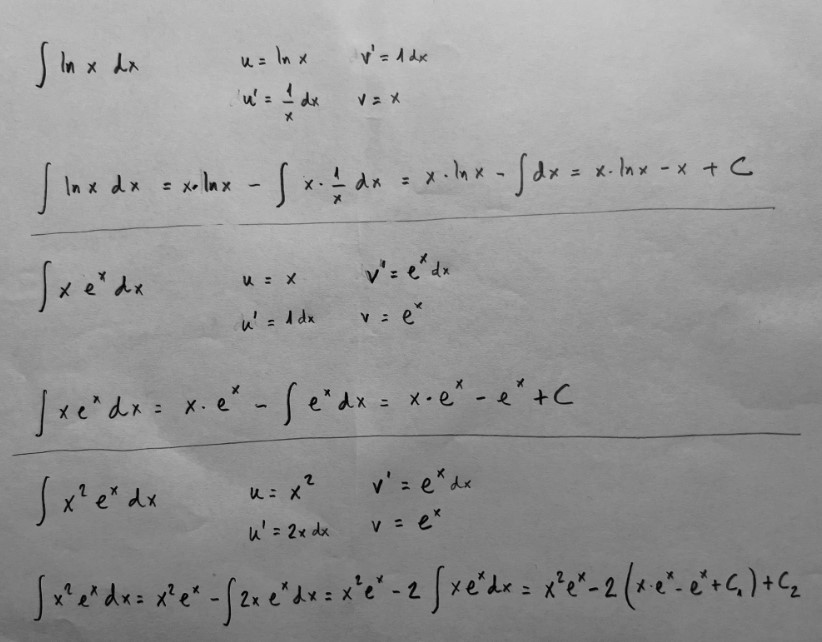 ∫ ln x dx u = ln x v' = 1 dx
u' = 1/x dx v = x
∫ ln x dx = x·ln x - ∫ x · 1/x dx = x · ln x - ∫ dx = x · ln x - x + C
∫ x eˣ dx u = x v' = eˣ dx
u' = 1 dx v = eˣ
∫ x eˣ dx = x · eˣ - ∫ eˣ dx = x · eˣ - eˣ + C
∫ x² eˣ dx u = x² v' = eˣ dx
u' = 2x dx v = eˣ
∫ x² eˣ dx = x² eˣ - ∫ 2x eˣ dx = x² eˣ - 2 ∫ x eˣ dx = x² eˣ - 2 (x · eˣ - eˣ + C₁) + C₂